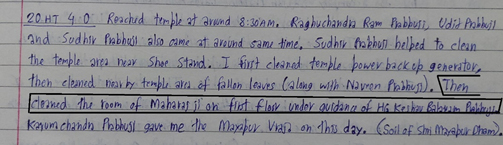 20 HT 4:0 Reached temple at around 8:30AM. Raghuchandra Ram Prabhuji, Udit Prabhuji
and Sudhir Prabhuji also came at around same time. Sudhir Prabhuji helped to clean
the temple area near Shoe Stand. I first cleaned temple power back up generator,
then cleaned nearby temple area of fallen leaves (along with Naveen Prabhuji). Then
cleaned the room of Maharaj ji on first floor under guidance of HG Keshav Balaram Prabhuji.
Karunachandra Prabhuji gave me the Mayapur Vraja on this day. (Soil of Shri Mayapur Dham).